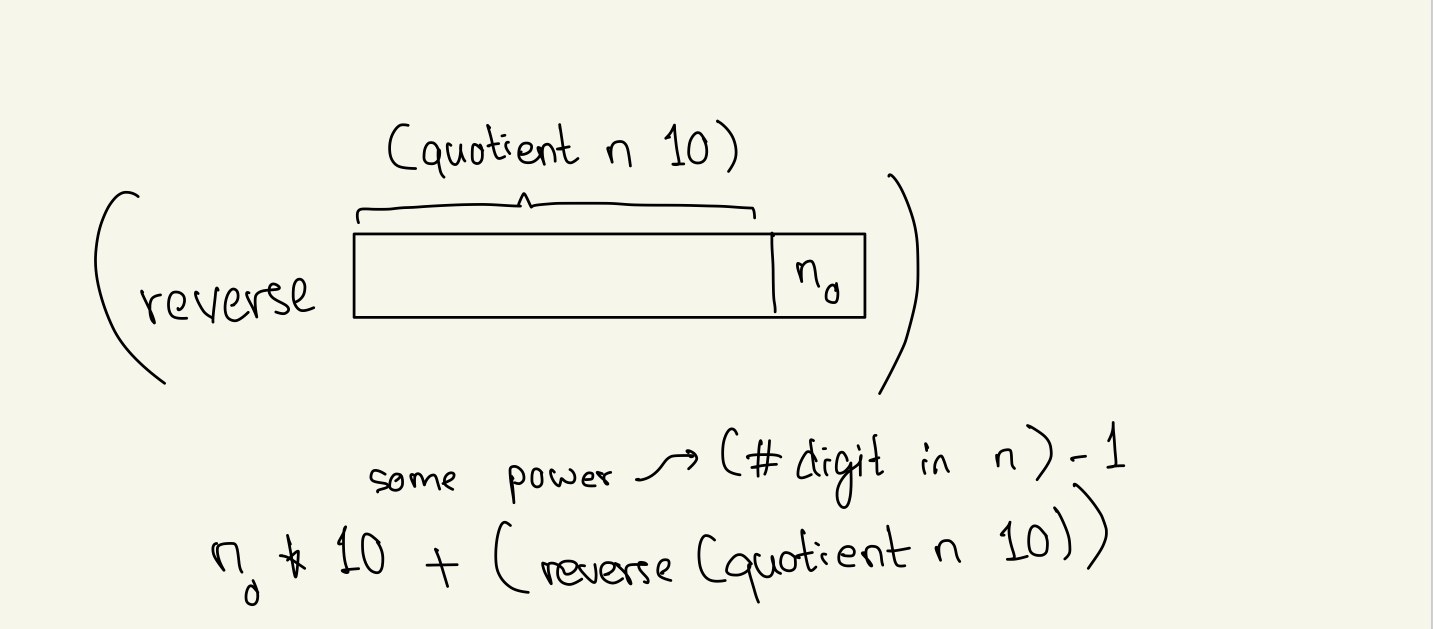 (quotient n 10)
(reverse n₀)
some power → (# digit in n) - 1
n₀ * 10 + (reverse (quotient n 10))